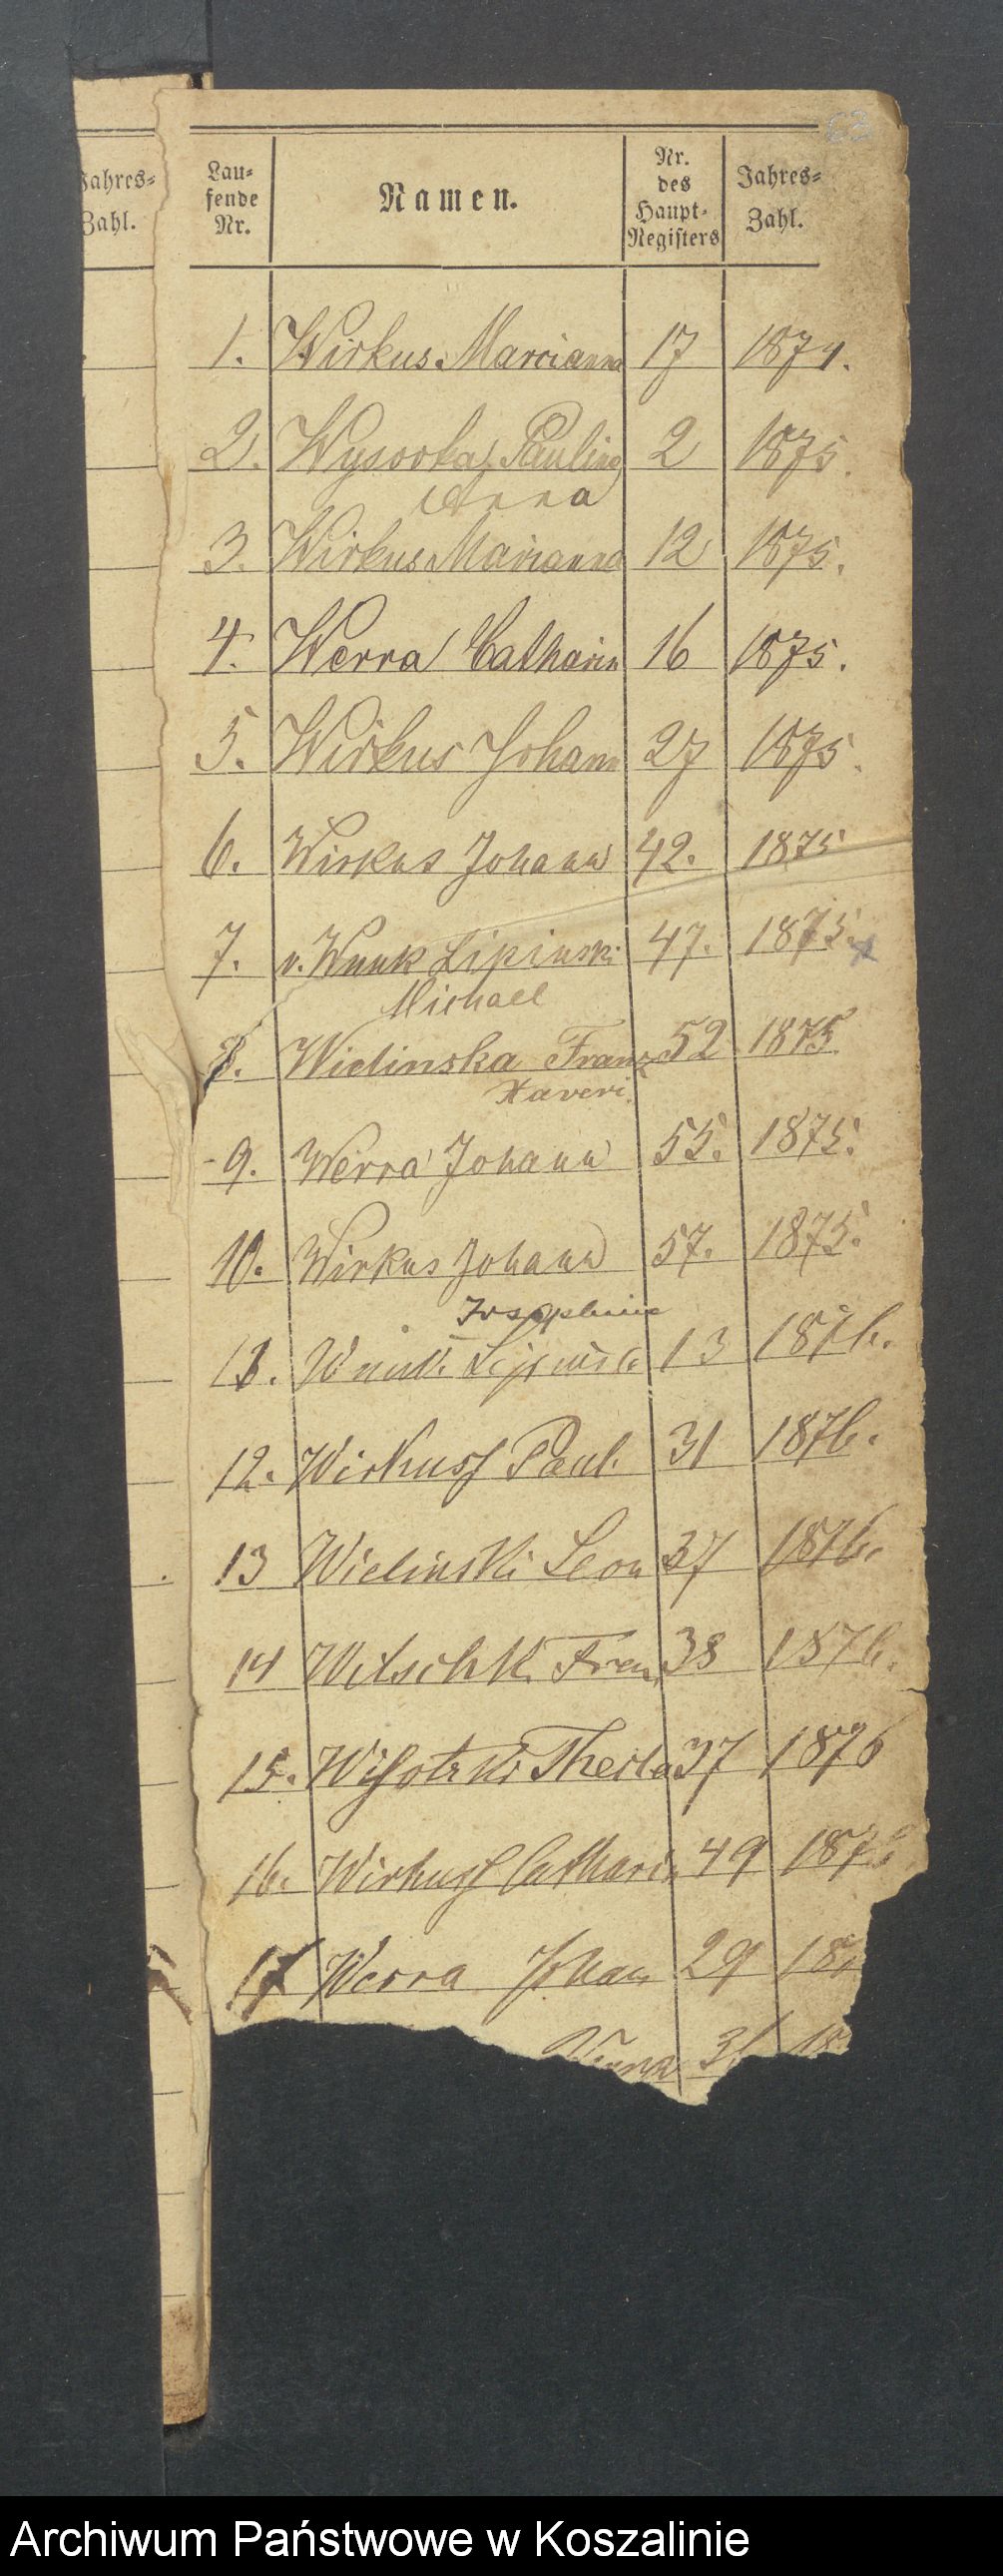 63
Jahres=
Zahl.
Lau=
fende
Nr.
Namen.
Nr.
des
Haupt=
Registers
Jahres=
Zahl.
1. Wirkus Marcianna 17 1874.
2. Wysocka Pauline 2 1875.
Anna
3. Wirkus Marianna 12 1875.
4. Werra Catharin 16 1875.
5. Wirkus Johann 27 1875.
6. Wirkus Johann 42. 1875
7. v. Wnuk Lipinski 47. 1875. x
Michael
8. Wielinska Franz 52 1875
Xaveri.
9. Werra Johann 55. 1875.
10. Wirkus Johann 57. 1875.
Josephine
11. Wnuk Lipinsk 13 1876.
12. Wirkuss Paul. 31 1876.
13 Wielinski Leon 37 1876.
14 38 1876.
15. 37 1876
16. Wirkuss Catharin 49 187
17 Werra Johan 29 18
31 18
Archiwum Państwowe w Koszalinie